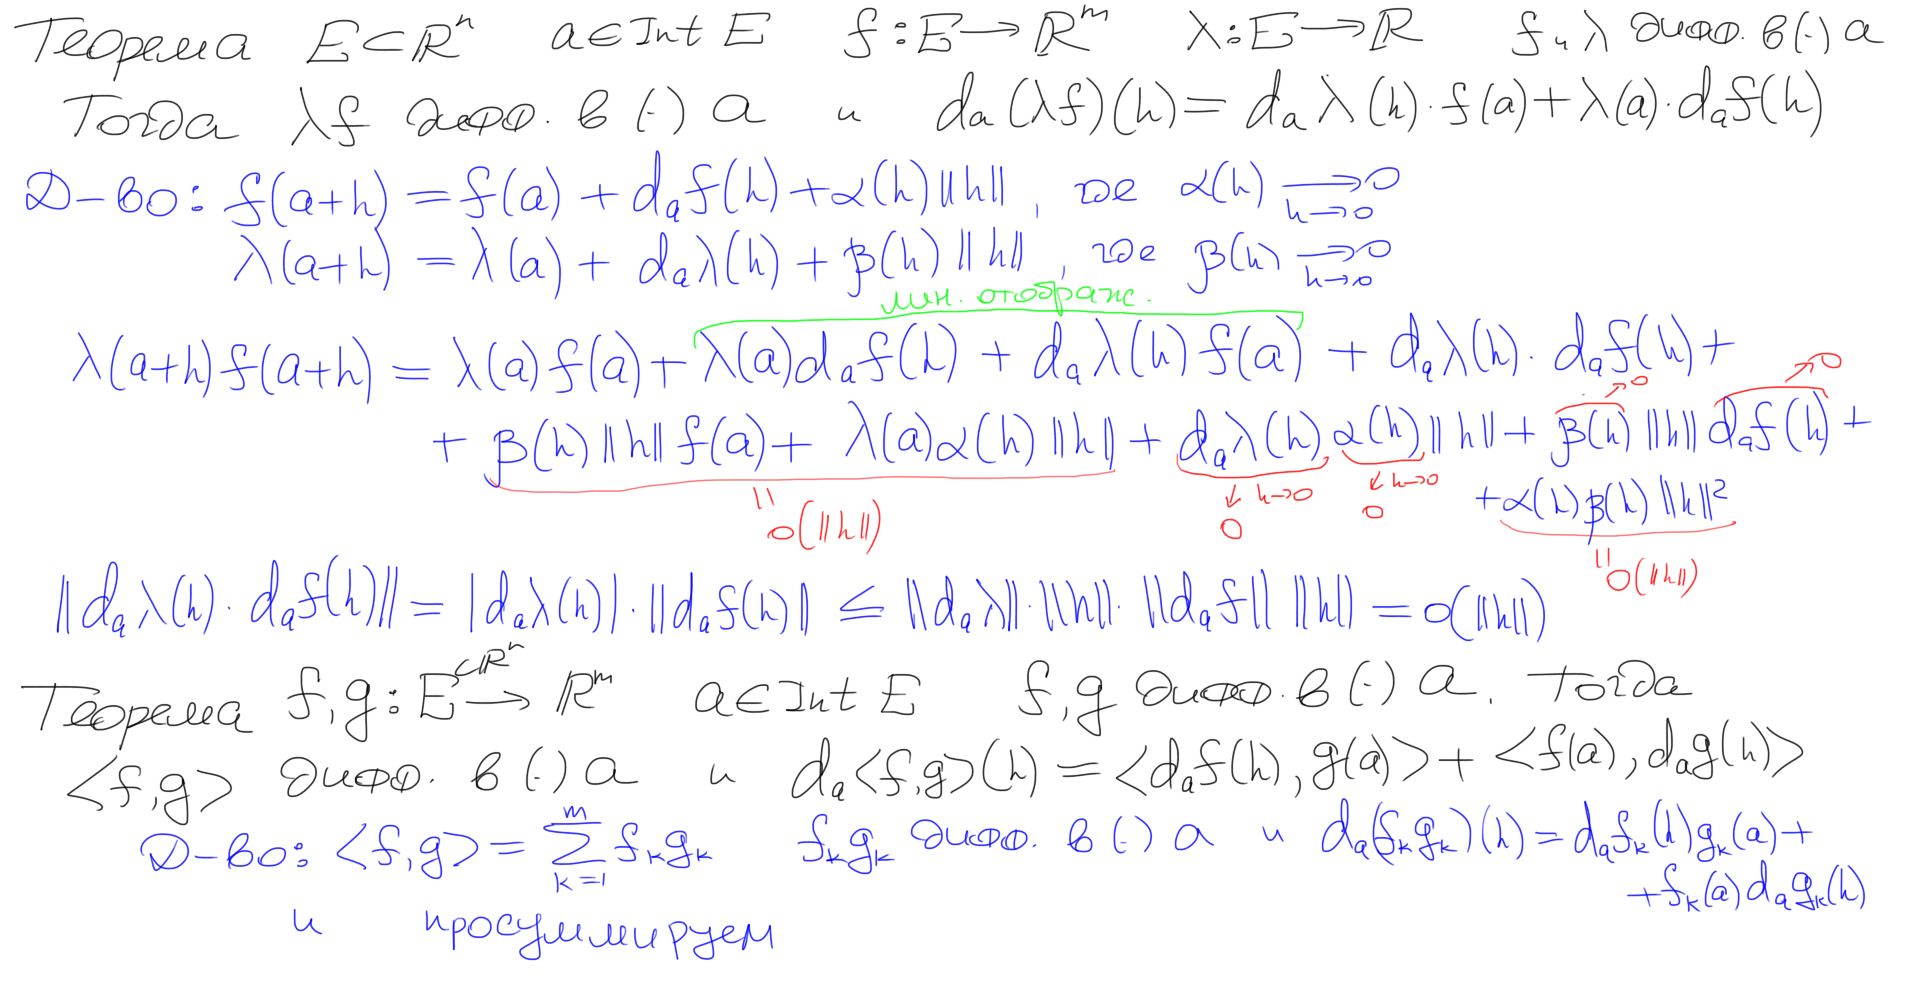 Теорема E⊂ℝⁿ a∈Int E f:E→ℝᵐ λ:E→ℝ f и λ дифф. в (·) a
Тогда λf дифф. в (·) a и dₐ(λf)(h) = dₐλ(h)·f(a)+λ(a)·dₐf(h)
Д-во: f(a+h) = f(a) + dₐf(h) + α(h)‖h‖, где α(h) →0 h→0
λ(a+h) = λ(a) + dₐλ(h) + β(h)‖h‖, где β(h) →0 h→0
лин. отображ.
λ(a+h)f(a+h) = λ(a)f(a) + λ(a)dₐf(h) + dₐλ(h)f(a) + dₐλ(h)·dₐf(h) +
→0 →0
+ β(h)‖h‖f(a) + λ(a)α(h)‖h‖ + dₐλ(h) α(h)‖h‖ + β(h)‖h‖dₐf(h) +
↓ h→0 ↓ h→0 + α(h)β(h)‖h‖²
= o(‖h‖) 0 0
= o(‖h‖)
‖dₐλ(h)·dₐf(h)‖ = |dₐλ(h)|·‖dₐf(h)‖ ≤ ‖dₐλ‖·‖h‖·‖dₐf‖ ‖h‖ = o(‖h‖)
Теорема f,g:E⊂ℝⁿ→ℝᵐ a∈Int E f,g дифф. в (·) a. Тогда
<f,g> дифф. в (·) a и dₐ<f,g>(h) = <dₐf(h), g(a)> + <f(a), dₐg(h)>
Д-во: <f,g> = ∑ₖ₌₁ᵐ fₖgₖ fₖgₖ дифф. в (·) a и dₐ(fₖgₖ)(h) = dₐfₖ(h)gₖ(a) +
+fₖ(a)dₐgₖ(h)
и просуммируем